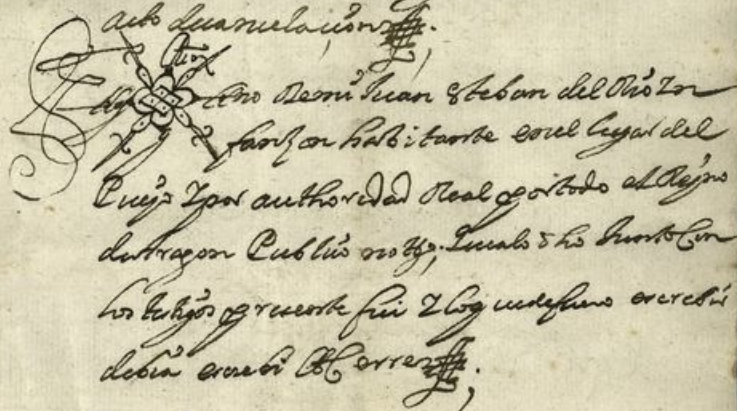 acto
Sig no De mi Juan Esteban del Rio In
fanzon habitante en el lugar del
Pueyo Y por authoridad Real por todo el Reyno
de Aragon Publico notº; que a lo dho Junto Con
los testigos presente fui Y lo que de fuero escrebir
debia escrebi Et Cerre